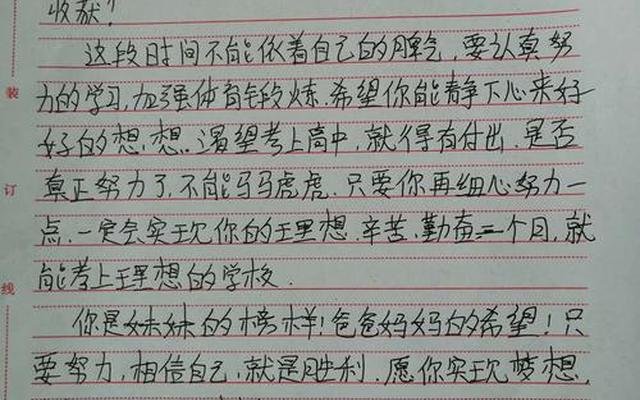 收获？
这段时间不能依着自己的脾气，要认真努
力的学习，加强体育锻炼。希望你能静下心来好
好的想，想。渴望考上高中，就得有付出。是否
真正努力了，不能马马虎虎。只要你再细心努力一
点，一定会实现你的理想。辛苦，勤奋三个月，就
能考上理想的学校。
你是妹妹的榜样！爸爸妈妈的希望！只
要努力，相信自己，就是胜利。愿你实现梦想，
装
订
线